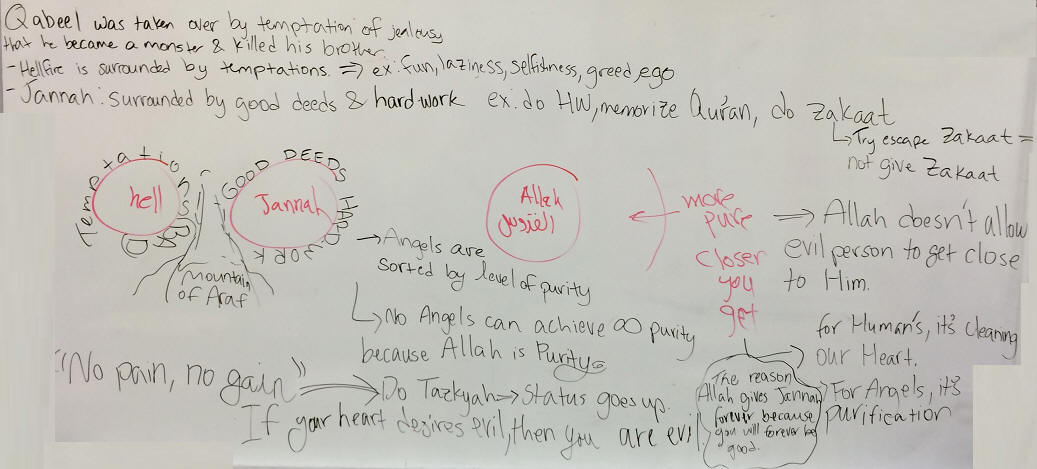 Qabeel was taken over by temptation of jealousy
that he became a monster & killed his brother.
- Hellfire is surrounded by temptations. => ex: fun, laziness, selfishness, greed, ego
- Jannah: surrounded by good deeds & hard work ex: do HW, memorize Qur'an, do zakaat
↳ Try escape zakaat =
not give zakaat
Temptations
BAD
hell
GOOD DEEDS HARD WORK
Jannah
mountain
of Araf
Allah
القدوس
← more
pure
closer
you
get
=> Allah doesn't allow
evil person to get close
to Him.
→ Angels are
sorted by level of purity
↳ No Angels can achieve ∞ purity
because Allah is Purity
for Human's, it's cleaning
our Heart.
For Angels, it's
purification
The reason
Allah gives Jannah
forever because
you will forever be
good.
"No pain, no gain" → Do Tazkyah → Status goes up.
If your heart desires evil, then you are evil.